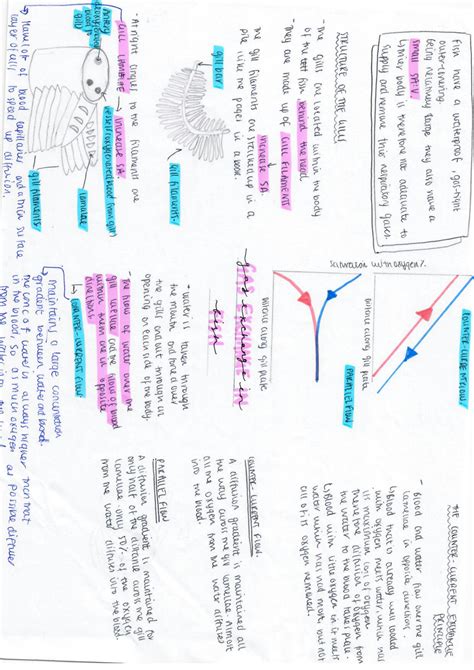 Fish have a waterproof, gas-tight
outer-covering
being relatively large they also have a
small SA:V
their body is therefore not adequate to
supply and remove their respiratory gases.
STRUCTURE OF THE GILLS
- The gills are located within the body
of the fish behind the head
- They are made up of GILL FILAMENTS
↳ increase SA
- The gill filaments are stacked up in a
pile like the pages in a book.
gill bar
Gill filaments
- At right angles to the filaments are
GILL LAMELLAE → increase SA
lamellae
gill filaments
↳ Made up of blood capillaries and a thin surface
layer of cells to speed up diffusion.
COUNTER-CURRENT FLOW
distance along gill plate
PARALLEL FLOW
distance along gill plate
saturation with oxygen %
Gas Exchange in
Fish
- Water is taken through
the mouth and moved over
the gills and out through an
opening on each side of the body.
- The flow of water over the
gill lamellae and the flow of blood
within them are in opposite
directions
↳ COUNTER-CURRENT FLOW
↳ maintains a large concentration
gradient between water and blood.
the conc of water is always higher than that
in the blood, so as much oxygen as possible diffuses
from the water into
THE COUNTER-CURRENT EXCHANGE
PRINCIPLE
- Blood and water flow over the gill
lamellae in opposite directions
↳ Blood that is already well loaded
with oxygen meets water which has
its maximum conc of oxygen
therefore diffusion of oxygen from
the water to the blood takes place
↳ Blood with little oxygen in it meets
water which has had most but not
all of its oxygen removed.
COUNTER CURRENT FLOW
A diffusion gradient is maintained all
the way across the gill lamellae. Almost
all the oxygen from the water diffuses
into the blood.
PARALLEL FLOW
A diffusion gradient is maintained for
only half of the distance across the gill
lamellae. only 50% of the oxygen
from the water diffuses into the blood